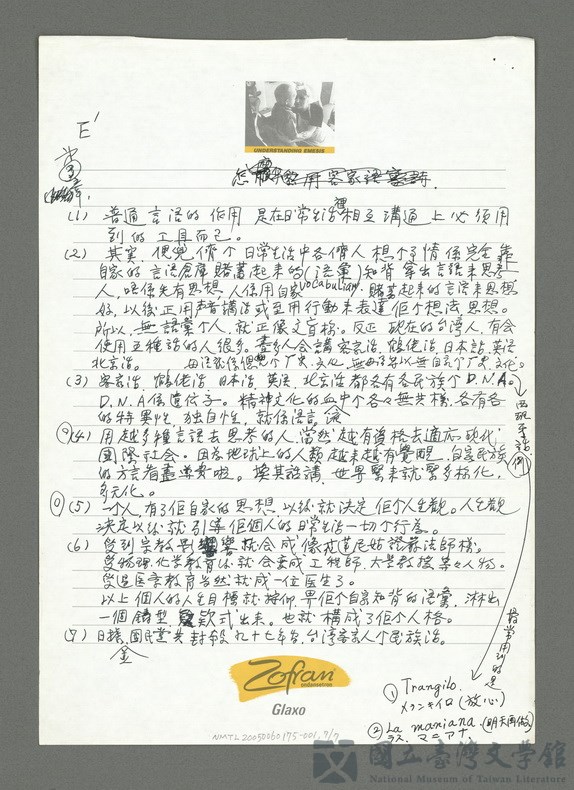 UNDERSTANDING EMESIS
E'
怎麼 用客家語寫詩
(1) 普通言語的作用是在日常生活裡相互溝通上必須用
到的工具而已。
(2) 其實,便兜儕个日常生活中各儕人想个事情係完全靠
自家的言語倉庫賭著起來的(語彙)知背拿出言語來思考
人,唔係先有思想,人係用自家vocabulary.賭著起來的言語來思想
好,以後正用声音講法或至用行動來表達佢个想法思想。
所以,無語彙个人,就正像文盲樣。反正現在的台灣人,有会
使用五種話的人很多。盡多人会講客家話,鶴佬話,日本話,英語
北京話。
(3) 客家話,鶴佬話,日本話,英語,北京話都各有各民族个D.N.A。
D.N.A係遺伝子。精神文化的血中个各々無共樣。各有各
的特異性,独自性,就係語言
(4) 用越多種言語去思考的人,當然越有資格去適応現代
國際社会。因為地球上的人類越來越有覺醒,自家民族
的方言有盡導貴啦。換其話講,世界緊來就緊多樣化,
多元化。
(5) 一个人,有了佢自家的思想,以後就決定佢个人生觀。人生觀
決定以後就引導佢個人的日常生活一切个行為。
(6) 受到宗教影響就会成像 尼姑證嚴法師樣。
受物理化学教育 就会變成工程師,大学教授等々人物。
受過医学教育當然就成一位医生了。
以上個人的人生目標就 畀佢个自家知背的語彙,
一個鑄型 款式出來。也就構成了佢个人格。
(7) 日據,國民党共封殺九十七年台灣客家人个民族語。
西班牙話
例
最常用到的是
① Trangilo.
(放心)
② La maniana.(明天再做)
ラス. マニアナ.
Zofran
ondansetron
Glaxo
NMTL20050060175-001,7/7
國立臺灣文學館
National Museum of Taiwan Literature